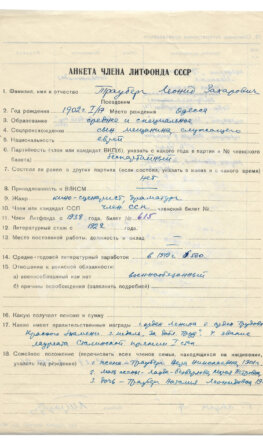 АНКЕТА ЧЛЕНА ЛИТФОНДА СССР
1. Фамилия, имя и отчество Трауберг Леонид Захарович
Псевдоним
2. Год рождения 1902 г. Место рождения Одесса
3. Образование среднее и специальное
4. Соцпроисхождение сын мещанина, служащего
5. Национальность еврей
6. Партийность (член или кандидат ВКП(б), указать с какого года в партии и № членского
билета) беспартийный
7. Состоял ли ранее в других партиях (если состоял, указать в каких и с какого времени)
нет
8. Принадлежность к ВЛКСМ
9. Жанр кино-сценарист, драматург
10. Член или кандидат ССП член ССП членский билет №
11. Член Литфонда с 1938 года, билет № 615
12. Литературный стаж с 1922 года.
13. Место постоянной работы, должность и оклад
14. Средне-годовой литературный заработок в 1940 г.
15. Отношение к воинской обязанности:
а) военнообязанный или нет военнообязанный
б) причины освобождения (заполнять подробно)
16. Какую получает пенсию и сумму
17. Какие имеет правительственные награды 1 орден Ленина 2 орден Трудового
Красного Знамени 3. медаль За 4. звание
лауреата Сталинской премии I ст.
18. Семейное положение (перечислить всех членов семьи, находящихся на иждивении,
указать год рождения) 1. жена - Трауберг Вера Николаевна, 1901 г.
2. мать жены - Мария Петровна,
3. дочь - Трауберг Наталия Леонидовна